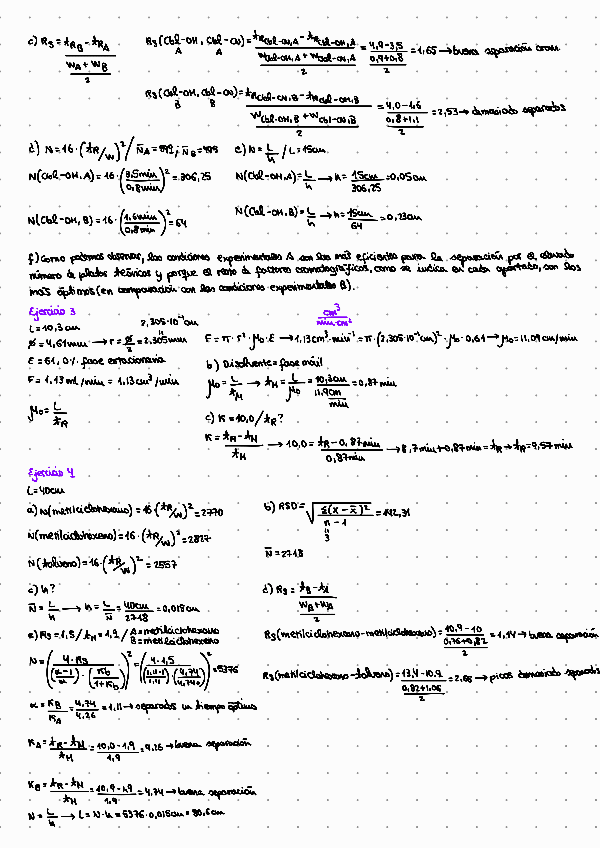 c) Rs = (tRB - tRA) / ((WA + WB)/2)
Rs (Cbl-OH, Cbl-CN) A A = (tRCbl-CN,A - tRCbl-OH,A) / ((WCbl-OH,A + WCbl-CN,A)/2) = (4,9-3,5) / ((0,9+0,8)/2) = 1,65 → buena separación crom.
Rs (Cbl-OH, Cbl-CN) B B = (tRCbl-OH,B - tRCbl-CN,B) / ((WCbl-OH,B + WCbl-CN,B)/2) = (4,0-1,6) / ((0,8+1,1)/2) = 2,53 → demasiado separados
d) N = 16·(tR/W)² / N̄A = ; N̄B =
e) N = L/h / L = 15cm.
N(Cbl-OH, A) = 16·(3,5min/0,8min)² = 306,25
N(Cbl-OH,A) = L/h → h = 15cm/306,25 = 0,05cm
N(Cbl-OH, B) = 16·(1,6min/0,8min)² = 64
N(Cbl-OH,B) = L/h → h = 15cm/64 = 0,23cm
f) Como podemos observar, las condiciones experimentales A son las más eficientes para la separación por el elevado
número de platos teóricos y porque el resto de factores cromatográficos, como se indica en cada apartado, son los
más óptimos (en comparación con las condiciones experimentales B).
Ejercicio 3
L = 10,3 cm
2,305·10⁻¹cm
cm³/min·cm²
ø = 4,61mm → r = ø/2 = 2,305mm
F = π·r²·µo·ε → 1,13cm³·min⁻¹ = π·(2,305·10⁻¹cm)²·µo·0,61 → µo = 11,09 cm/min
ε = 61,0% fase estacionaria
b) Disolvente = fase móvil
F = 1,13 ml/min = 1,13 cm³/min
µo = L/tM → tM = L/µo = 10,3cm / 11,9cm/min = 0,87 min
µo = L/tR
c) K = 10,0 / tR?
K = (tR - tM)/tM → 10,0 = (tR - 0,87min)/0,87min → 8,7min + 0,87min = tR → tR = 9,57 min
Ejercicio 4
L = 40cm
a) N(metilciclohexano) = 16 (tR/W)² = 2770
b) RSD = √(Σ(x - x̄)² / n - 1) = 142,31
3
N(metilciclohexeno) = 16·(tR/W)² = 2827
N (tolueno) = 16·(tR/W)² = 2557
N̄ = 2718
c) h?
d) Rs = (tB - tA) / ((WA + WB)/2)
N̄ = L/h → h = L/N̄ = 40cm/2718 = 0,015cm
e) Rs = 1,5 / tM = 1,9 / A = metilciclohexano
B = metilciclohexeno
Rs (metilciclohexeno - metilciclohexano) = (10,9 - 10) / ((0,76+0,82)/2) = 1,14 → buena separación
N = (4·Rs / ((α-1)/α)·(KB/(1+KB)))² = (4·1,5 / ((1,11-1)/1,11)·(4,74/4,74+))² = 5376
Rs (metilciclohexeno - tolueno) = (13,4 - 10,9) / ((0,82+1,06)/2) = 2,66 → picos demasiado separados
α = KB/KA = 4,74/4,26 = 1,11 → separados un tiempo óptimo
KA = (tR - tM)/tM = (10,0 - 1,9)/1,9 = 4,26 → buena separación
KB = (tR - tM)/tM = (10,9 - 1,9)/1,9 = 4,74 → buena separación
N = L/h → L = N·h = 5376·0,015cm = 80,6cm